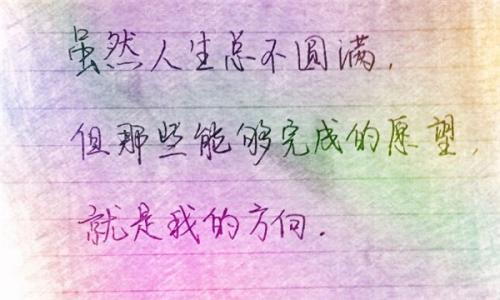 虽然人生总不圆满,
但那些能够完成的愿望,
就是我的方向.